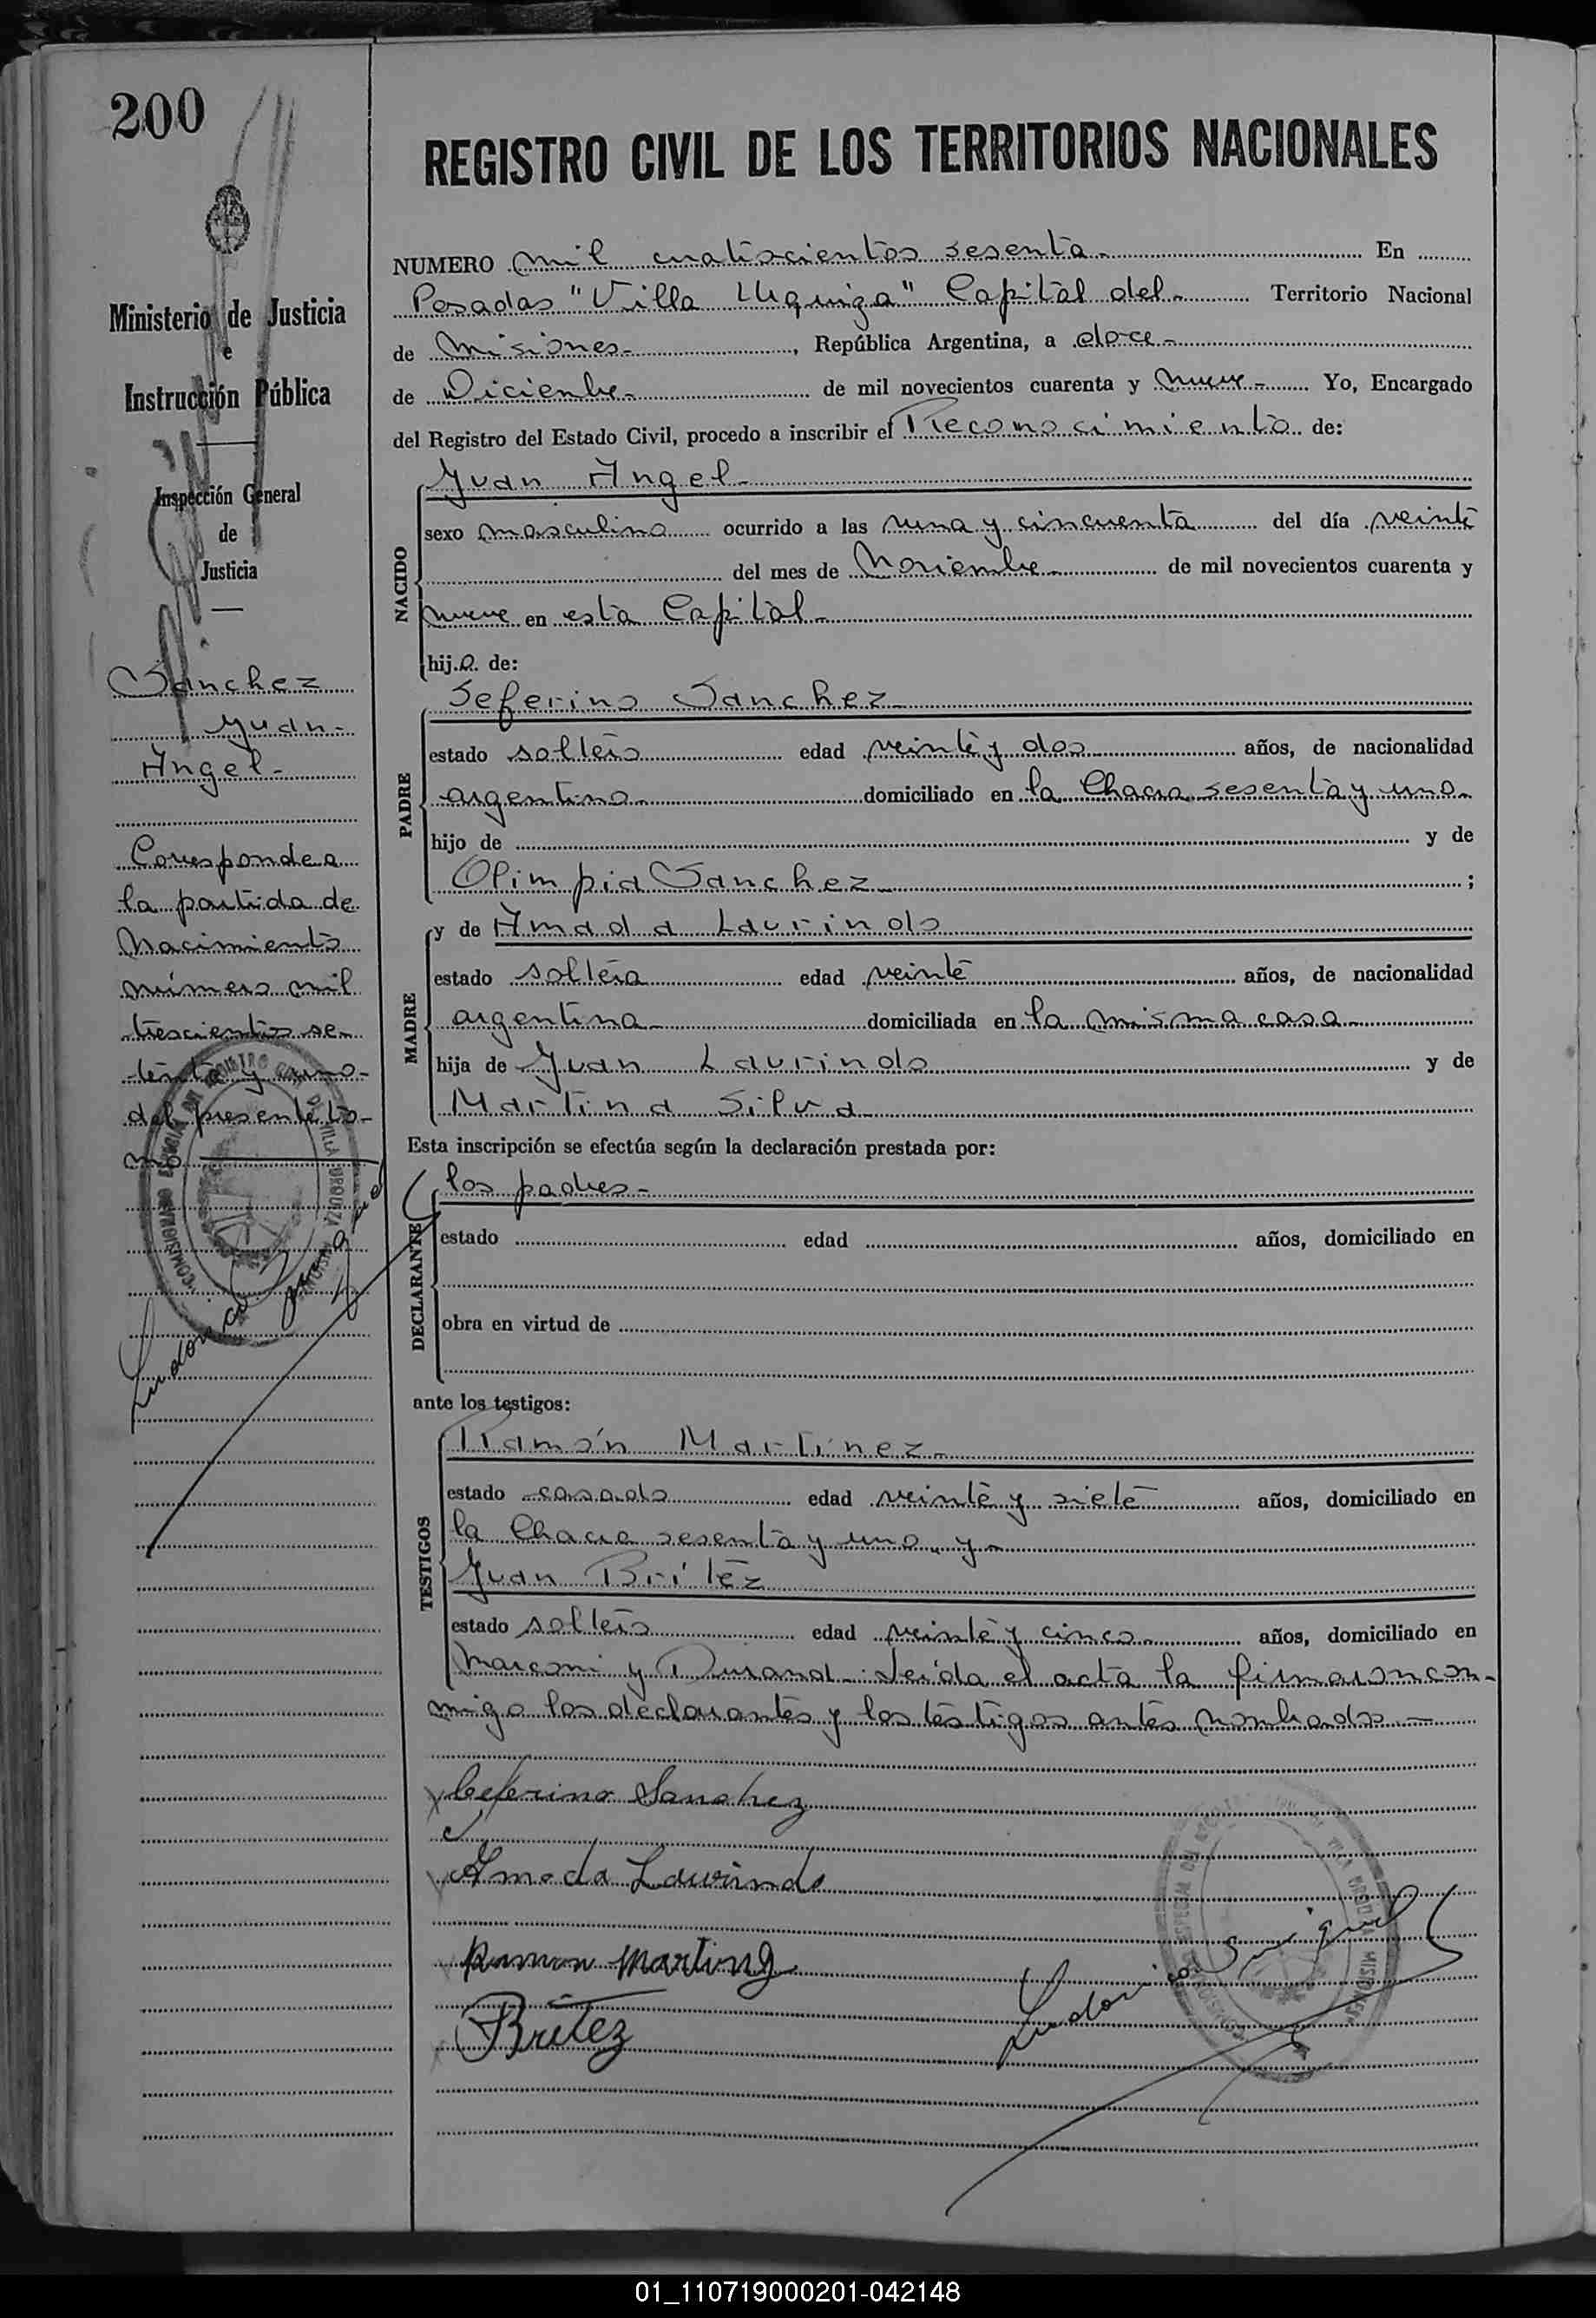 200
Ministerio de Justicia
e
Instrucción Pública
Inspección General
de
Justicia
Sanchez
Juan
Angel.-
Corresponde a
la partida de
Nacimiento
número mil
trescientos se-
tenta y uno-
del presente to-
mo
REGISTRO CIVIL DE LOS TERRITORIOS NACIONALES
NUMERO mil cuatrocientos sesenta.- En
Posadas "Villa Urquiza" Capital del.- Territorio Nacional
de Misiones.- , República Argentina, a doce.-
de Diciembre.- de mil novecientos cuarenta y nueve.- Yo, Encargado
del Registro del Estado Civil, procedo a inscribir el Reconocimiento de:
NACIDO
Juan Angel.-
sexo masculino ocurrido a las una y cincuenta del día veinte
del mes de Noviembre.- de mil novecientos cuarenta y
nueve en esta Capital.-
hijo de:
PADRE
Seferino Sanchez.-
estado soltero edad veinte y dos años, de nacionalidad
argentino.- domiciliado en la Chacra sesenta y uno.-
hijo de y de
Olimpia Sanchez.- ;
MADRE
y de Amada Laurindo
estado soltera edad veinte años, de nacionalidad
argentina.- domiciliada en la misma casa.-
hija de Juan Laurindo y de
Martina Silva.-
Esta inscripción se efectúa según la declaración prestada por:
DECLARANTE
los padres.-
estado edad años, domiciliado en
obra en virtud de
ante los testigos:
TESTIGOS
Ramón Martínez.-
estado casado edad veinte y siete años, domiciliado en
la Chacra sesenta y uno. y.-
Juan Brítez
estado soltero edad veinte y cinco.- años, domiciliado en
Marconi y Durand.- Leída el acta la firmaron con-
migo los declarantes y los testigos antes nombrados.-
Ceferino Sanchez
Amada Laurindo
Ramon Martinez
Britez
01_110719000201-042148